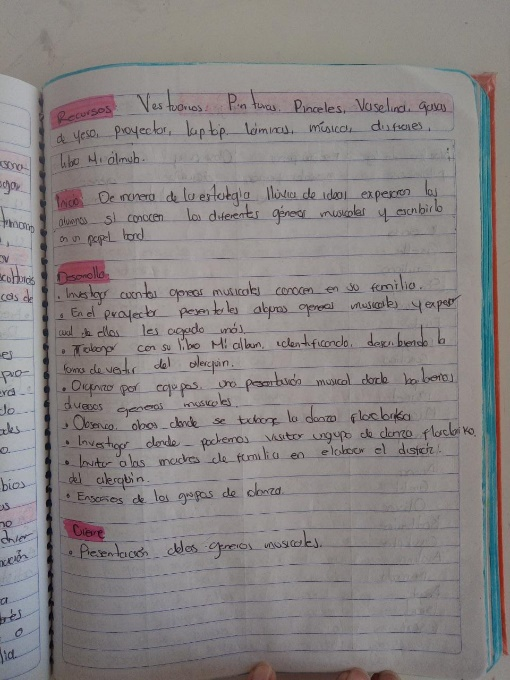 Recursos Vestuarios. Pinturas. Pinceles, Vaselina, gasas
de yeso, proyector, laptop, láminas, música, disfraces,
libro Mi álbum.
Inicio De manera de la estrategia lluvia de ideas expresen los
alumnos si conocen los diferentes géneros musicales y escribirlo
en un papel bond
Desarrollo
• Investigar cuantos generos musicales conocen en su familia.
• En el proyector presentarles algunos generos musicales y expresar
cual de ellos les agrado más.
• Trabajar con su libro Mi album, identificando, describiendo la
forma de vestir del alerquin.
• Organizar por equipos, una presentación musical donde
diversos generos musicales
• Observar obras donde se trabaje la danza
• Investigar donde podemos visitar un grupo de danza
• Invitar a las madres de familia en elaborar el disfraz
del alerquin.
• Ensayos de los grupos de danza.
Cierre
• Presentación de los géneros musicales.
asona
ogar
esculturas
cas de
es
pro-
ales
bios
as
mo
nación
a
trés
o
lia